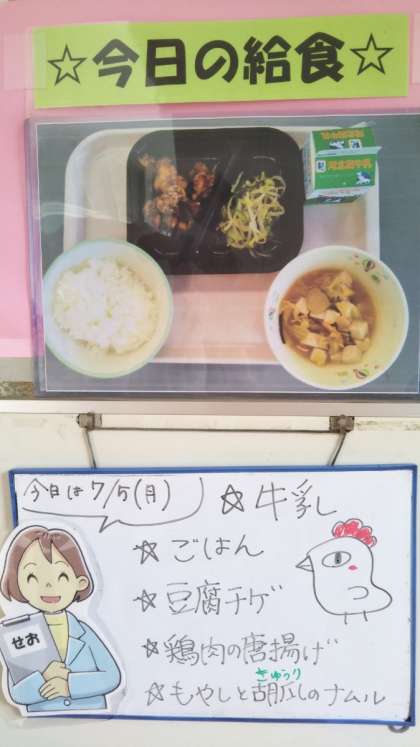 ☆今日の給食☆
今日は7/5(月)
☆牛乳
☆ごはん
☆豆腐チゲ
☆鶏肉の唐揚げ
きゅうり
☆もやしと胡瓜のナムル
せお